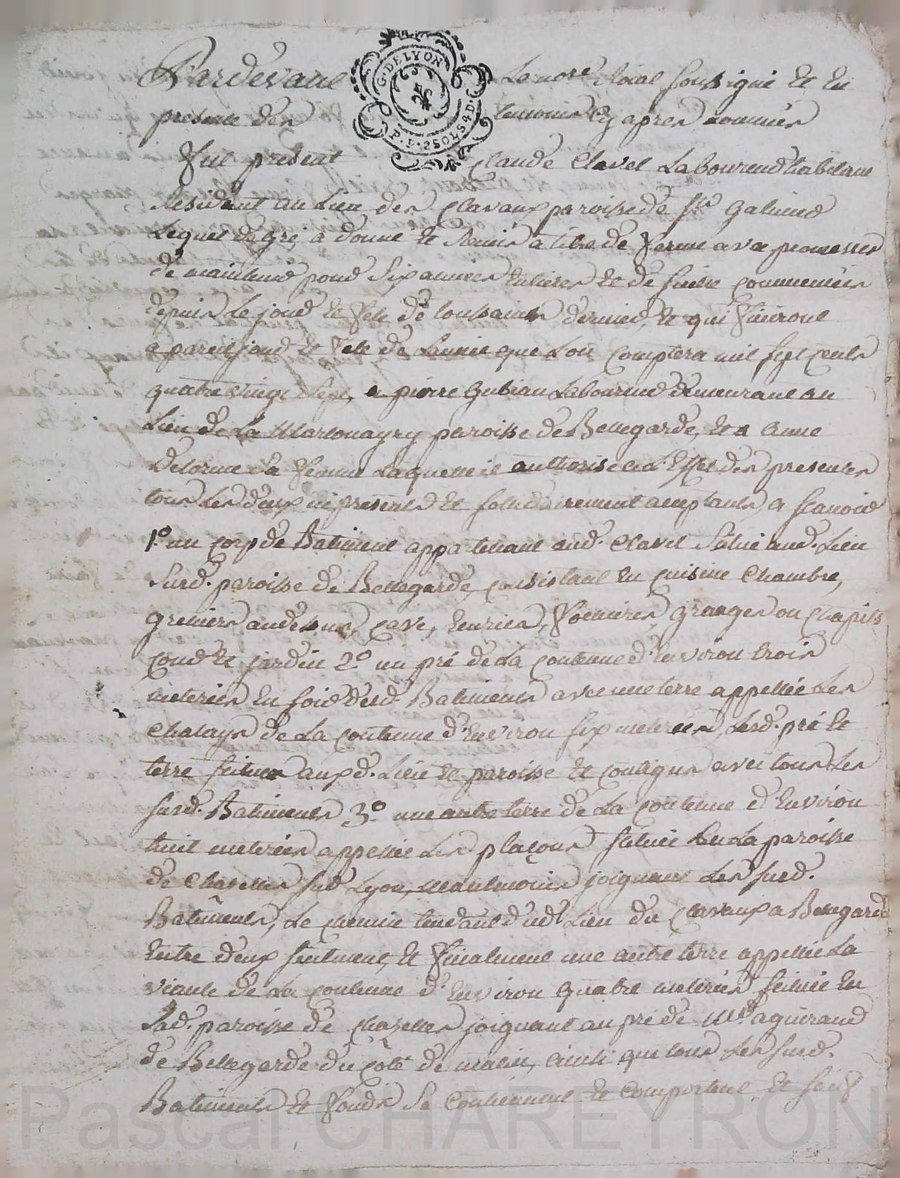 Pardevant Le no.re Roial soussigné et en
presence des temoins cy apres nommés
Fut present Claude Clavel Laboureur habitant
Residant au Lieu des Clavaux paroisse de St Galmier
Lequel de gré à donné et Remis a titre de ferme avec promesses
de maintenir pour six années entieres et de suitte commencées
depuis le jour et fête de toussaints dernier, et qui finiront
a pareil jour et fete de Lannée que Lon comptera mil sept cents
quatre vingt sept, a pierre Gubian Laboureur demeurant au
Lieu de La paroisse de Bellegarde, et a anne
Delorme sa femme Laquelle il authorise a L'Effet des presentes
tous Les deux icy presents et solidairement acceptants a scavoir
1.° un corp de Batiment appartenant aud. Clavel situé aud. Lieu
surd. paroisse de Bellegarde, consistant en cuisine chambre,
greniers audessus, cave, Ecuries, granges ou chapits
cour et jardin 2.° un pré de La contenue d'Environ trois
meterées en foin desd. Batiments avec une terre appellée Les
chalays de La contenue d'Environ six meterées Lesd. pré et
terre situés auxd. Lieu et paroisse et contigus avec tous Les
surd. Batiments 3.° une autre terre de La contenue d'Environ
huit meterées appellée Les plaçons située en La paroisse
de Chazelles sur Lyon, neantmoins joignant Les surd.
Batiments, Le chemin tendant dud. Lieu des Clavaux a Bellegarde
Entre deux seulement, et finalement une autre terre appellée La
de La contenue d'Environ quatre meterées située en
Lad. paroisse de Chazelles joignant au pré de Mr aguiraud
de Bellegarde du côté de matin, ainsi que tous Les surd.
Batiments et fonds se contiennent et comportent et sans
G. DE LYON
Pascal CHAREYRON